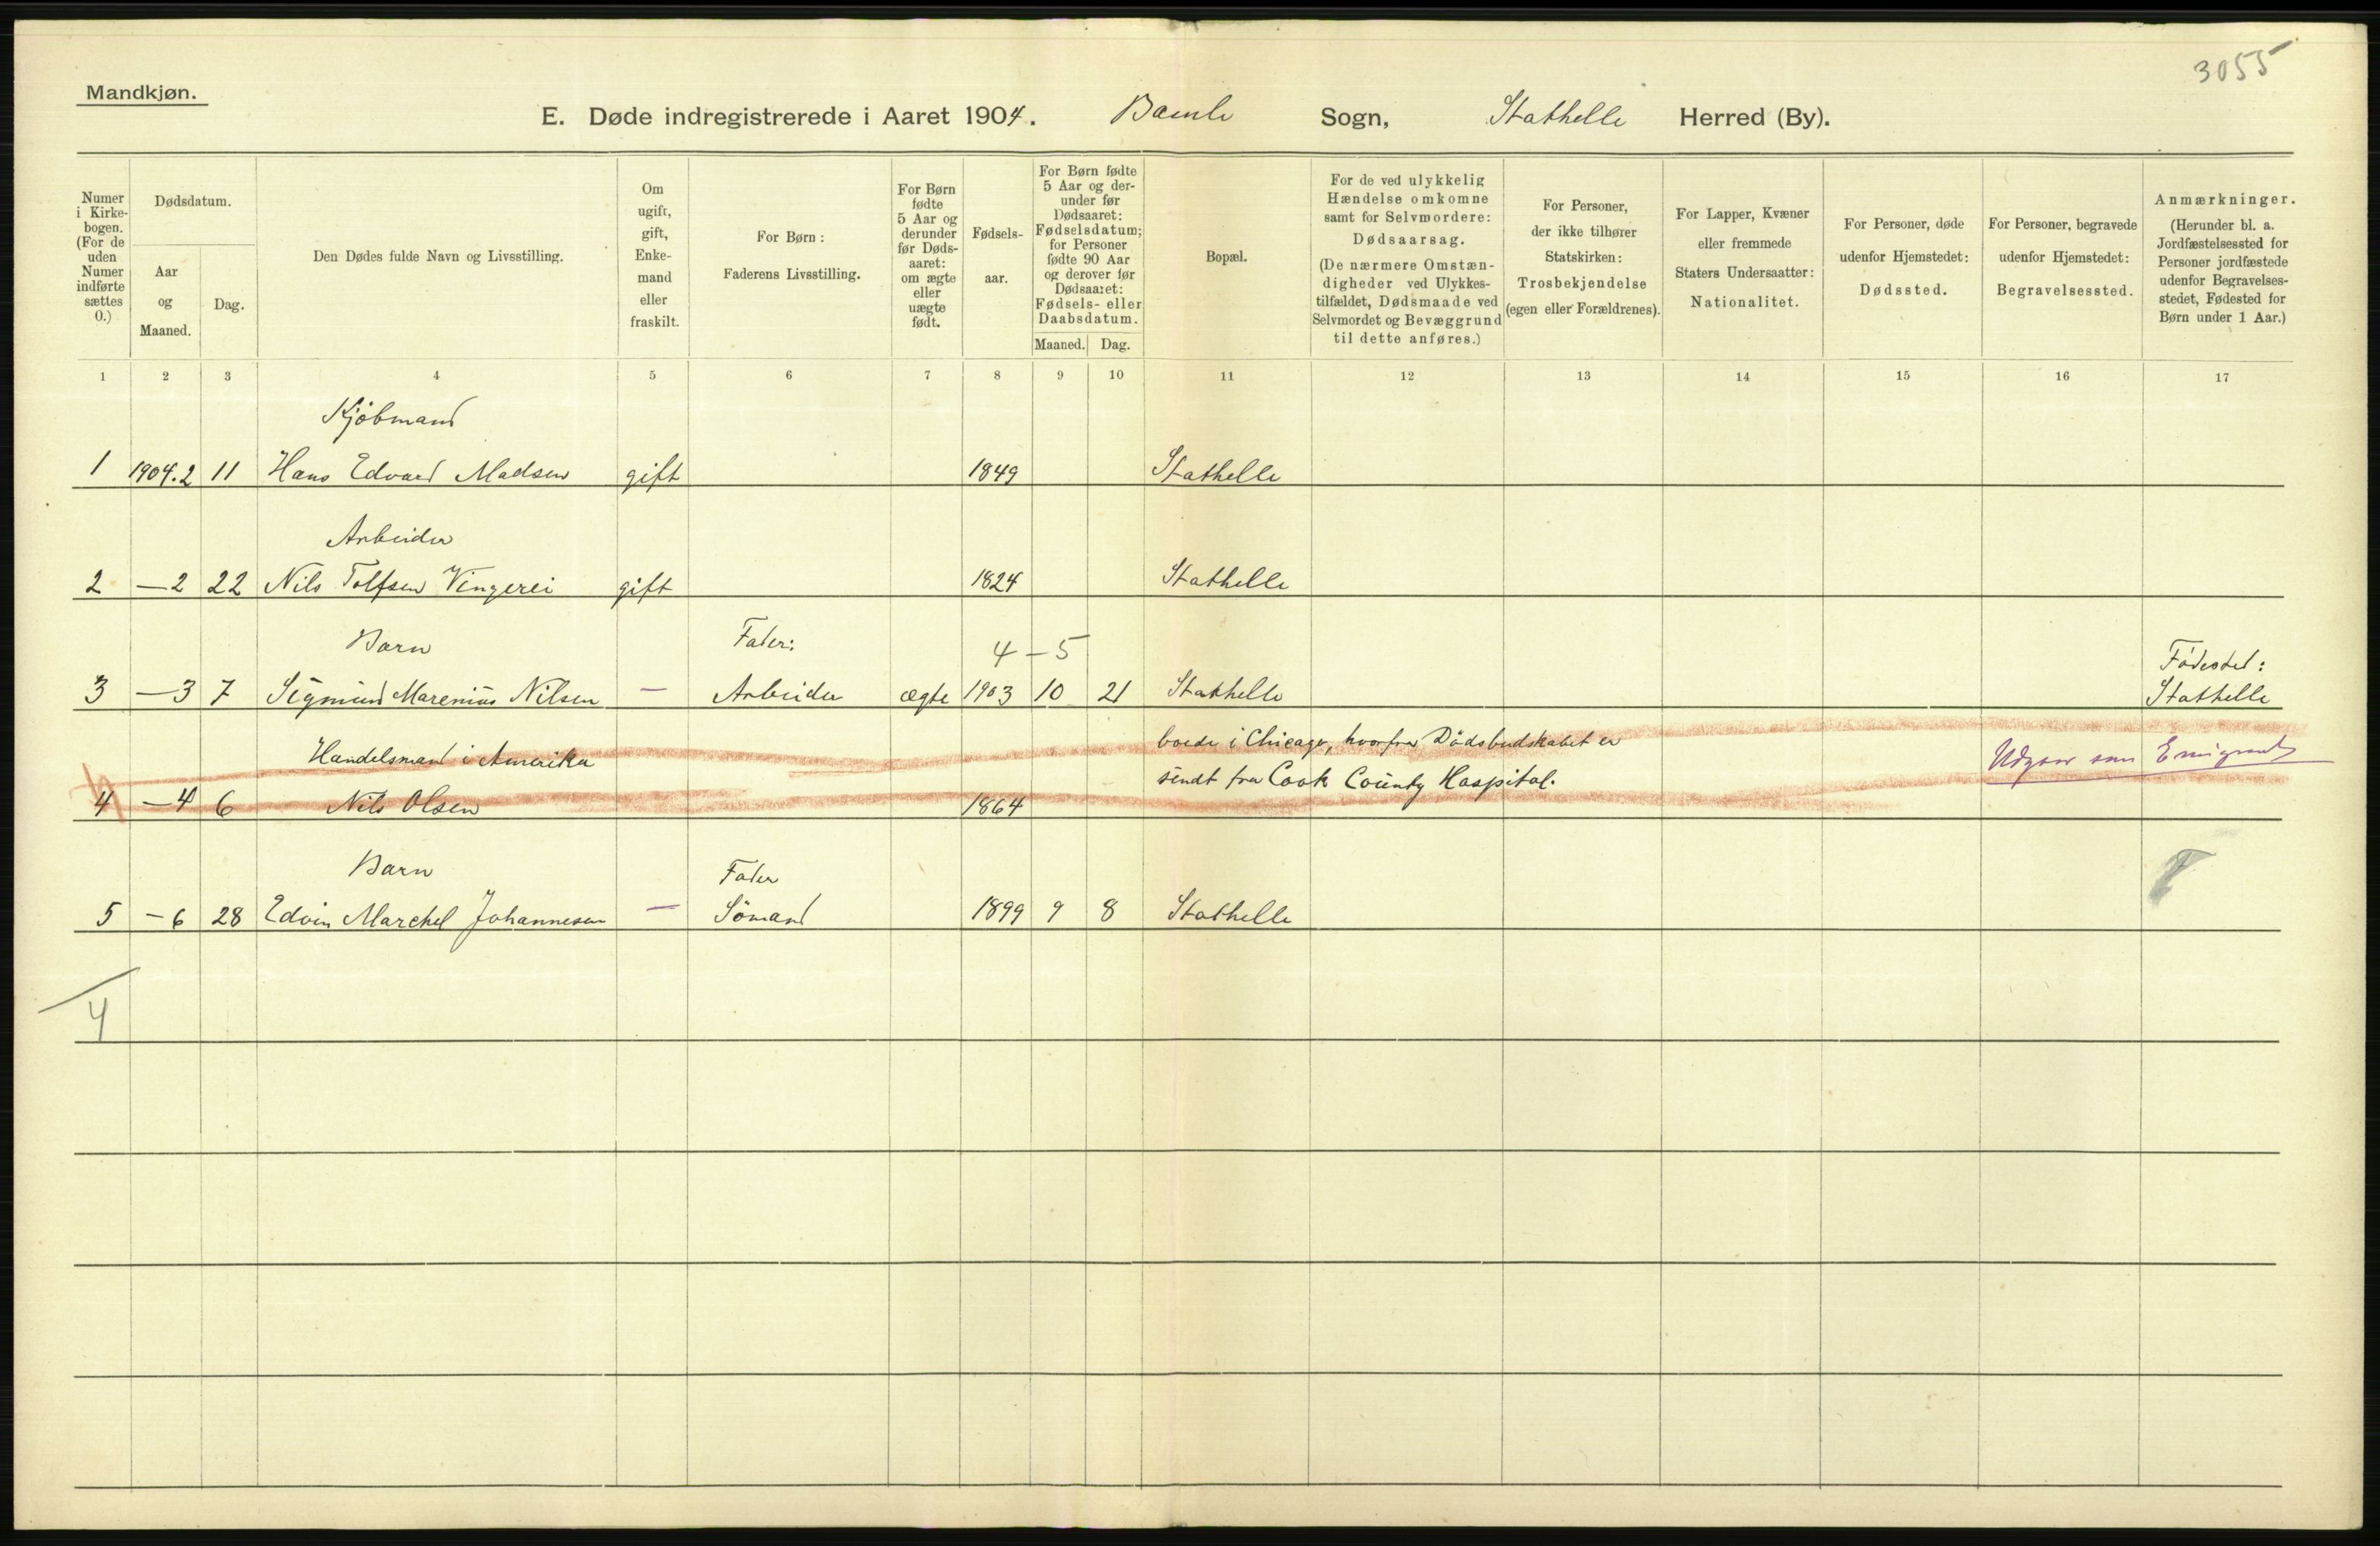 3055
Mandkjøn.
E. Døde indregistrerede i Aaret 1904. Bamle Sogn, Stathelle Herred (By).
Numer i Kirke-bogen. (For de uden Numer indførte sættes 0.)
Dødsdatum.
Aar og Maaned.
Dag.
Den Dødes fulde Navn og Livsstilling.
Om ugift, gift, Enke-mand eller fraskilt.
For Børn: Faderens Livsstilling.
For Børn fødte 5 Aar og derunder før Døds-aaret: om ægte eller uægte født.
Fødsels-aar.
For Børn fødte 5 Aar og der-under før Dødsaaret: Fødselsdatum; for Personer fødte 90 Aar og derover før Dødsaaret: Fødsels- eller Daabsdatum.
Maaned. Dag.
Bopæl.
For de ved ulykkelig Hændelse omkomne samt for Selvmordere: Dødsaarsag. (De nærmere Omstæn-digheder ved Ulykkes-tilfældet, Dødsmaade ved Selvmordet og Bevæggrund til dette anføres.)
For Personer, der ikke tilhører Statskirken: Trosbekjendelse (egen eller Forældrenes).
For Lapper, Kvæner eller fremmede Staters Undersaatter: Nationalitet.
For Personer, døde udenfor Hjemstedet: Dødssted.
For Personer, begravede udenfor Hjemstedet: Begravelsessted.
Anmærkninger. (Herunder bl. a. Jordfæstelsessted for Personer jordfæstede udenfor Begravelses-stedet, Fødested for Børn under 1 Aar.)
1 2 3 4 5 6 7 8 9 10 11 12 13 14 15 16 17
Kjöbmand
1 1904.2 11 Hans Edvard Madsen gift 1849 Stathelle
Arbeider
2 — 2 22 Nils Tolfsen Vingerei gift 1824 Stathelle
Barn Fader: 4 – 5 Födested:
3 — 3 7 Sigmund Marenius Nilsen — Arbeider ægte 1903 10 21 Stathelle Stathelle
Handelsmand i Amerika boede i Chicago, hvorfra Dödsbudskabet er Udgaar som Emigrant
4 — 4 6 Nils Olsen 1864 sendt fra Cook County Hospital.
Barn Fader
5 – 6 28 Edvin Marchel Johannesen — Sömand 1899 9 8 Stathelle
4